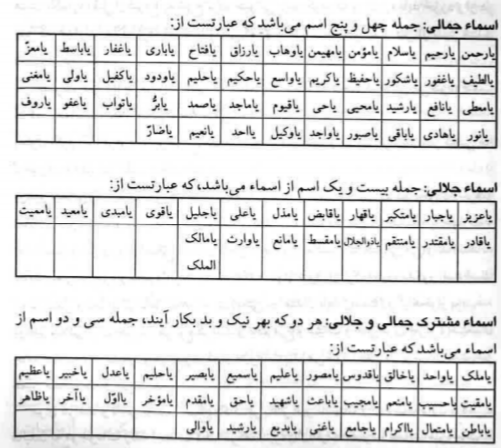 اسماء جمالی: جمله چهل و پنج اسم می‌باشد که عبارتست از:
یارحمن یارحیم یاسلام یامؤمن یامهیمن یاوهاب یارزاق یافتاح یاباری یاغفار یاباسط یامعزّ
یالطیف یاغفور یاشکور یاحفیظ یاکریم یاواسع یاحکیم یاحلیم یاودود یاکفیل یاولی یامغنی
یامعطی یانافع یارشید یامحیی یاحی یاقیوم یاماجد یاصمد یابرُّ یاتواب یاعفو یاروف
یانور یاهادی یاباقی یاصبور یاواجد یاوکیل یااحد یانعیم یاضارّ
اسماء جلالی: جمله بیست و یک اسم از اسماء می‌باشد،که عبارتست از:
یاعزیز یاجبار یامتکبر یاقهار یاقابض یامذل یاعلی یاجلیل یاقوی یامبدی یامعید یاممیت
یاقادر یامقتدر یامنتقم یاذوالجلال یامقسط یامانع یاوارث یامالک
الملک
اسماء مشترک جمالی و جلالی: هر دو که بهر نیک و بد بکار آیند، جمله سی و دو اسم از
اسماء می‌باشد که عبارتست از:
یاملک یاواحد یاخالق یاقدوس یامصور یاعلیم یاسمیع یابصیر یاحلیم یاعدل یاخبیر یاعظیم
یامقیت یاحسیب یامنعم یامجیب یاباعث یاشهید یاحق یامقدم یامؤخر یااوّل یاآخر یاظاهر
یاباطن یامتعال یااکرام یاجامع یاغنی یابدیع یارشید یاوالی